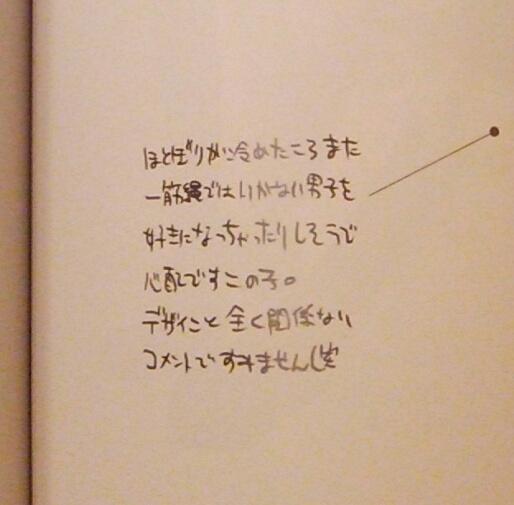 ほとぼりが冷めたころまた
一筋縄ではいかない男子を
好きになっちゃったりしそうで
心配ですこの子。
デザインと全く関係ない
コメントですみません(笑